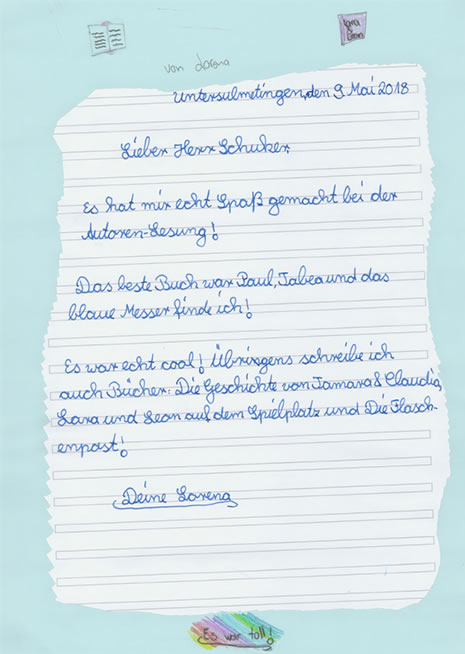 Lara
Leon
von Lorena
Untersulmetingen, den 9 Mai 2018
Lieber Herr Schuker,
Es hat mir echt Spaß gemacht bei der
Autoren-Lesung!
Das beste Buch war Paul, Tabea und das
blaue Messer finde ich!
Es war echt cool! Übrigens schreibe ich
auch Bücher: Die Geschichte von Tamara & Claudia,
Lara und Leon auf dem Spielplatz und Die Flasch-
enpost!
Deine Lorena
Es war toll!